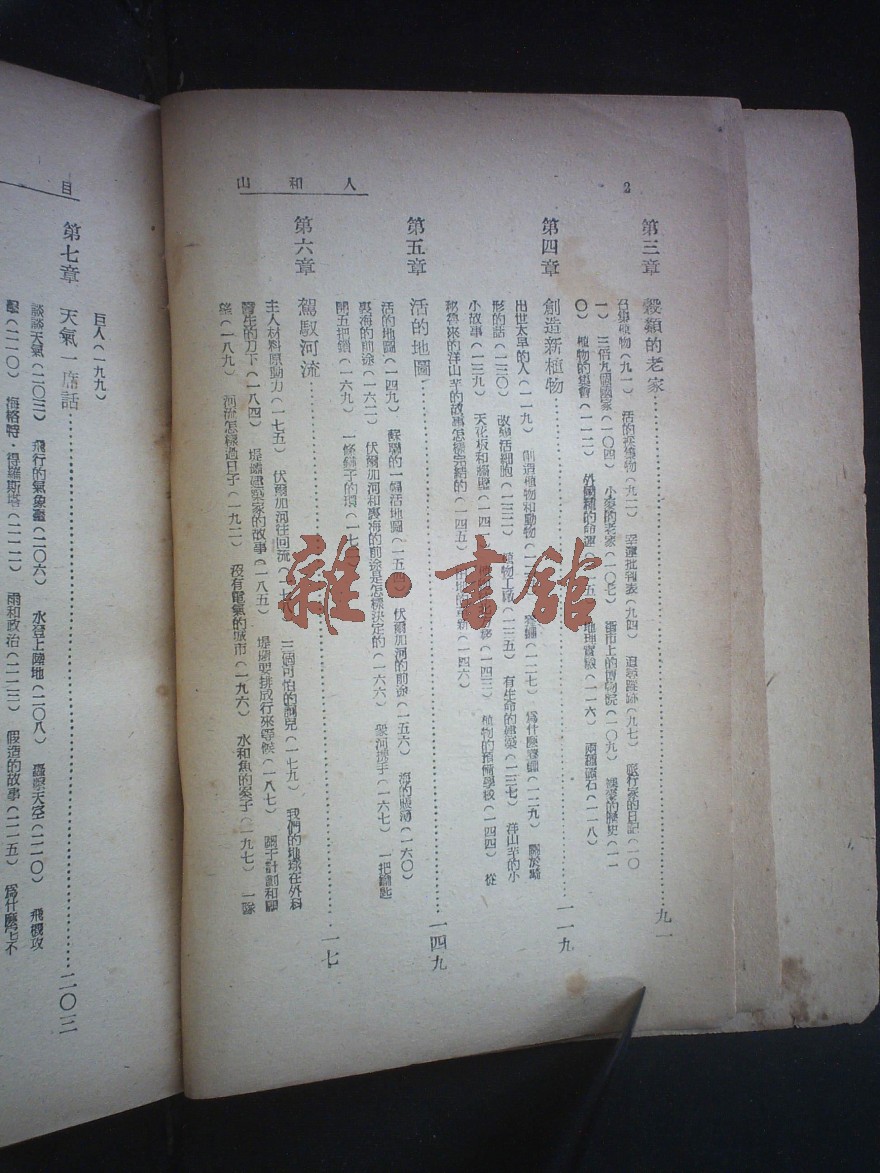 人和山
2
第三章 穀類的老家……九一
召集植物(九一) 活的 植物(九二) 幸運批判表(九四) 追尋蹤跡(九七) 旅行家的日記(一〇
一) 三百九 國家(一〇四) 小麥的老家(一〇七) 街市上的博物院(一〇九) 的歷史(一一
〇) 植物的集會(一一二) 外國種的命運( 五) 地理實驗(一一六) 兩種 石(一一八)
第四章 創造新植物……一一九
出世太早的人(一一九) 創造植物和動物( (一二七) 爲什麼 (一二九) 關於畸
形的話(一三〇) 改變活細胞(一三二) 植物工廠(一三五) 有生命的建築(一三七) 洋山芋的小
小故事(一三九) 天花板和牆壁(一四 (一四三) 植物的預備學校(一四四) 從
秘魯來的洋山芋的故事怎樣完結的(一四五) 新(一四六)
第五章 活的地圖……一四九
活的地圖(一四九) 蘇聯的一幅活地圖(一五四) 伏爾加河的前途(一五六) 海的 (一六〇)
裏海的前途(一六二) 伏爾加河和裏海的前途是怎樣決定的(一六六) 衆河携手(一六七) 一把鑰匙
開五把鎖(一六九) 一條鏈子的環(一七
第六章 駕馭河流……一七
主人材料原動力(一七五) 伏爾加河往回流( 三個可怕的 兒(一七九) 我們的地球在外科
醫生的刀下(一八四) 堤壩建築家的故事(一八五) 堤壩要排成行來等候(一八七) 關于計劃和
望(一八九) 河流怎樣過日子(一九二) 沒有電氣的城市(一九六) 水和魚的案子(一九七) 一隊
目
巨人(一九九)
第七章 天氣一席話……二〇三
談談天氣(二〇三) 飛行的氣象臺(二〇六) 水登上陸地(二〇八) 天空(二一〇) 飛機攻
擊(二一〇) 梅格特·得羅斯塔(二一二) 雨和政治(二一三) 假造的故事(二一五) 爲什麼 不
雜·書館